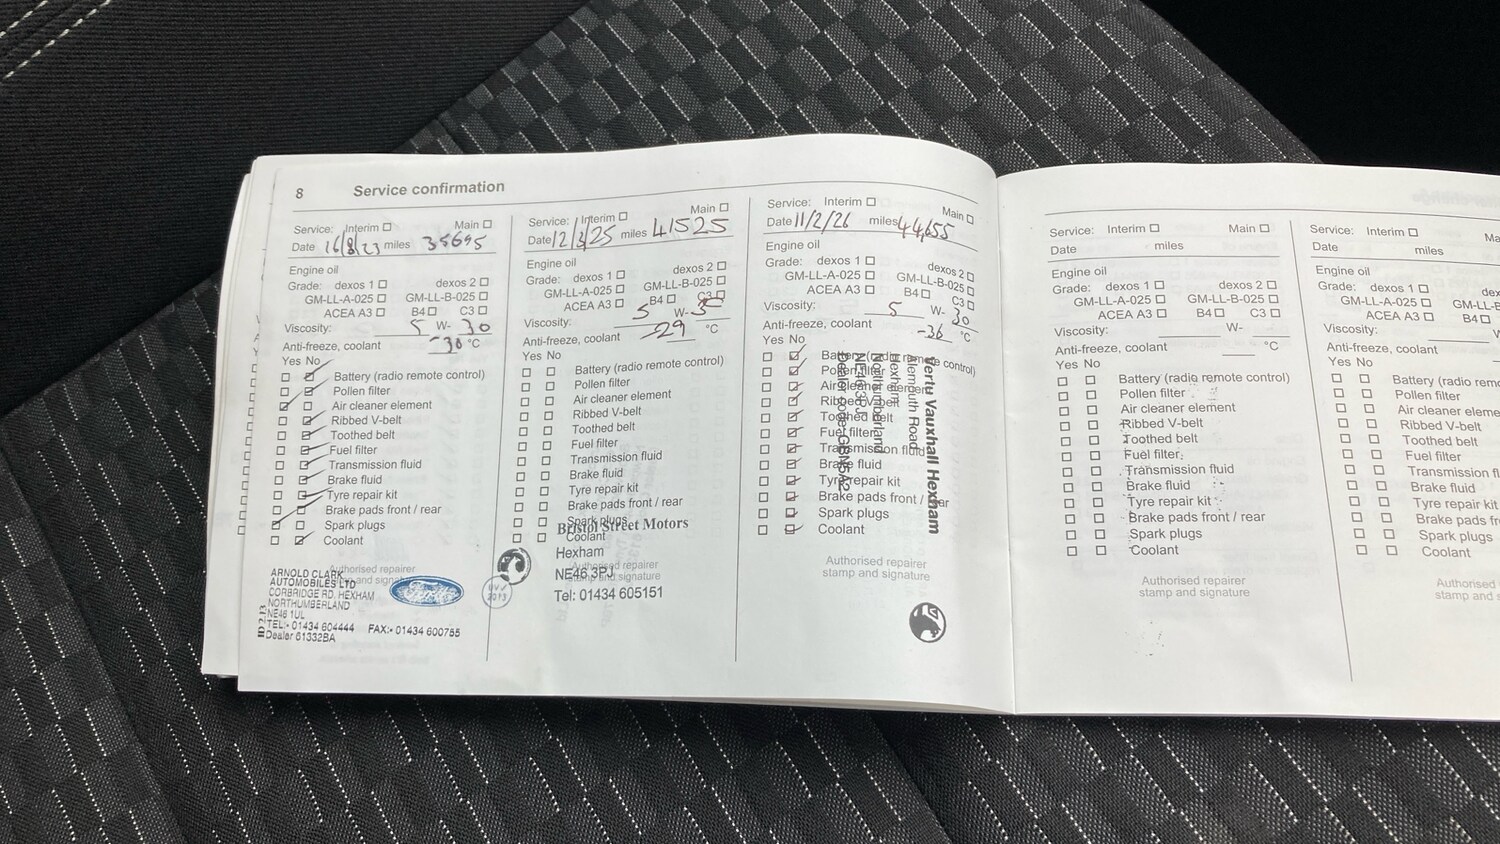 8 Service confirmation
Service: Interim Main
Date 16/8/23 miles 35695
Engine oil
Grade: dexos 1 dexos 2
GM-LL-A-025 GM-LL-B-025
ACEA A3 B4 C3
Viscosity: 5 W- 30
Anti-freeze, coolant -30 °C
Yes No
Battery (radio remote control)
Pollen filter
Air cleaner element
Ribbed V-belt
Toothed belt
Fuel filter
Transmission fluid
Brake fluid
Tyre repair kit
Brake pads front / rear
Spark plugs
Coolant
Authorised repairer
stamp and signature
ARNOLD CLARK
AUTOMOBILES LTD
CORBRIDGE RD. HEXHAM
NORTHUMBERLAND
NE46 1UL
TEL:- 01434 604444 FAX:- 01434 600755
Dealer 61332BA
Ford
Service: Interim Main
Date 12/3/25 miles 41525
Engine oil
Grade: dexos 1 dexos 2
GM-LL-A-025 GM-LL-B-025
ACEA A3 B4 C3
Viscosity: 5 W-
Anti-freeze, coolant -29 °C
Yes No
Battery (radio remote control)
Pollen filter
Air cleaner element
Ribbed V-belt
Toothed belt
Fuel filter
Transmission fluid
Brake fluid
Tyre repair kit
Brake pads front / rear
Spark plugs
Coolant
Authorised repairer
stamp and signature
Bristol Street Motors
Hexham
NE46 3PJ
Tel: 01434 605151
Service: Interim Main
Date 11/2/26 miles 44,655
Engine oil
Grade: dexos 1 dexos 2
GM-LL-A-025 GM-LL-B-025
ACEA A3 B4 C3
Viscosity: 5 W- 30
Anti-freeze, coolant -36 °C
Yes No
Battery (radio remote control)
Pollen filter
Air cleaner element
Ribbed V-belt
Toothed belt
Fuel filter
Transmission fluid
Brake fluid
Tyre repair kit
Brake pads front / rear
Spark plugs
Coolant
Vertu Vauxhall Hexham
Alemouth Road
Hexham
Northumberland
NE46 3PJ
Authorised repairer
stamp and signature
Service: Interim Main
Date miles
Engine oil
Grade: dexos 1 dexos 2
GM-LL-A-025 GM-LL-B-025
ACEA A3 B4 C3
Viscosity: W-
Anti-freeze, coolant °C
Yes No
Battery (radio remote control)
Pollen filter
Air cleaner element
Ribbed V-belt
Toothed belt
Fuel filter
Transmission fluid
Brake fluid
Tyre repair kit
Brake pads front / rear
Spark plugs
Coolant
Authorised repairer
stamp and signature
Service: Interim Ma
Date miles
Engine oil
Grade: dexos 1 dex
GM-LL-A-025 GM-LL-B
ACEA A3 B4
Viscosity:
Anti-freeze, coolant
Yes No
Battery (radio remo
Pollen filter
Air cleaner eleme
Ribbed V-belt
Toothed belt
Fuel filter
Transmission fl
Brake fluid
Tyre repair kit
Brake pads fr
Spark plugs
Coolant
Authorised
stamp and s